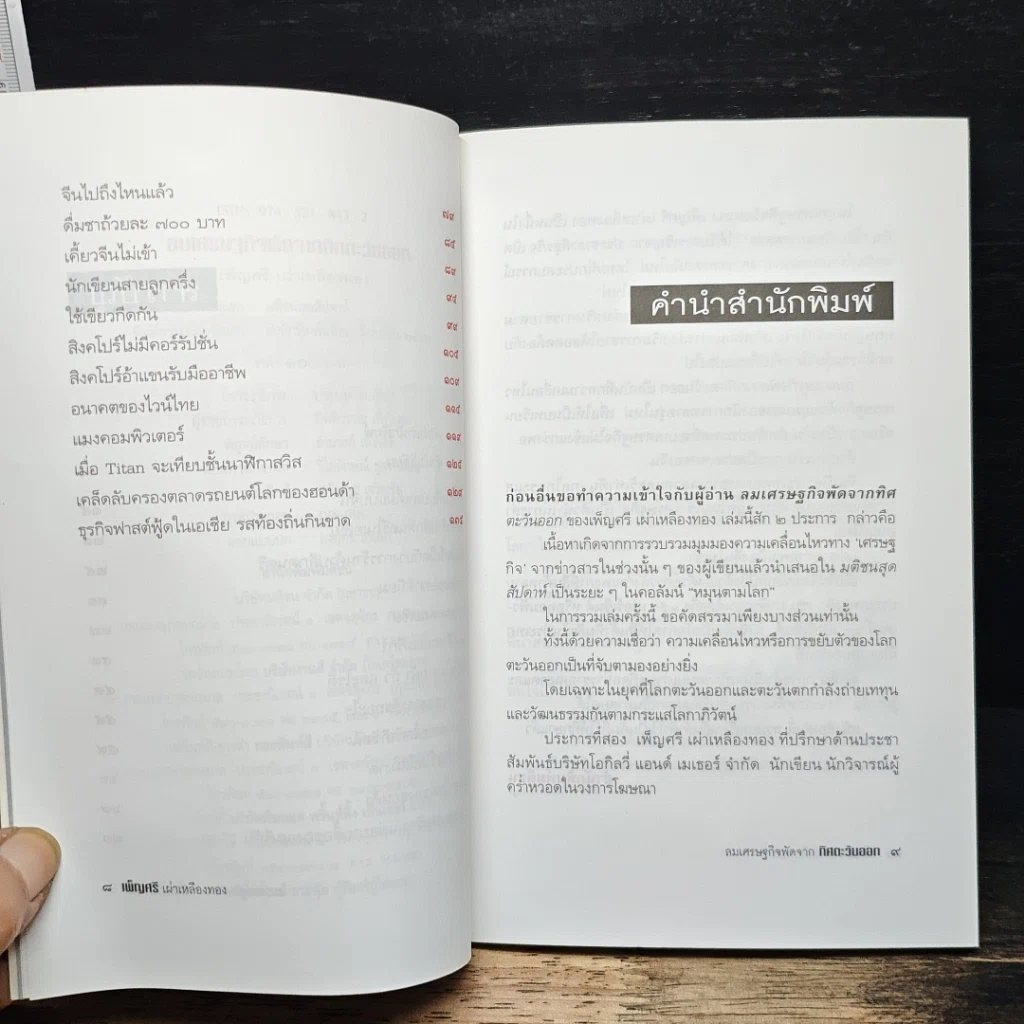 จีนไปถึงไหนแล้ว ๗๙
ดื่มชาถ้วยละ ๗๐๐ บาท ๘๕
เคี้ยวจีนไม่เข้า ๘๙
นักเขียนสายลูกครึ่ง ๙๕
ใช้เขียวกีดกัน ๙๙
สิงคโปร์ไม่มีคอร์รัปชั่น ๑๐๕
สิงคโปร์อ้าแขนรับมืออาชีพ ๑๐๙
อนาคตของไวน์ไทย ๑๑๕
แมงคอมพิวเตอร์ ๑๑๙
เมื่อ Titan จะเทียบชั้นนาฬิกาสวิส ๑๒๕
เคล็ดลับครองตลาดรถยนต์โลกของฮอนด้า ๑๒๙
ธุรกิจฟาสต์ฟู้ดในเอเชีย รสท้องถิ่นกินขาด ๑๓๕
๘ เพ็ญศรี เผ่าเหลืองทอง
คำนำสำนักพิมพ์
ก่อนอื่นขอทำความเข้าใจกับผู้อ่าน ลมเศรษฐกิจพัดจากทิศ
ตะวันออก ของเพ็ญศรี เผ่าเหลืองทอง เล่มนี้สัก ๒ ประการ กล่าวคือ
เนื้อหาเกิดจากการรวบรวมมุมมองความเคลื่อนไหวทาง 'เศรษฐ
กิจ' จากข่าวสารในช่วงนั้น ๆ ของผู้เขียนแล้วนำเสนอใน มติชนสุด
สัปดาห์ เป็นระยะ ๆ ในคอลัมน์ "หมุนตามโลก"
ในการรวมเล่มครั้งนี้ ขอคัดสรรมาเพียงบางส่วนเท่านั้น
ทั้งนี้ด้วยความเชื่อว่า ความเคลื่อนไหวหรือการขยับตัวของโลก
ตะวันออกเป็นที่จับตามองอย่างยิ่ง
โดยเฉพาะในยุคที่โลกตะวันออกและตะวันตกกำลังถ่ายเททุน
และวัฒนธรรมกันตามกระแสโลกาภิวัตน์
ประการที่สอง เพ็ญศรี เผ่าเหลืองทอง ที่ปรึกษาด้านประชา
สัมพันธ์บริษัทโอกิลวี่ แอนด์ เมเธอร์ จำกัด นักเขียน นักวิจารณ์ผู้
คร่ำหวอดในวงการโฆษณา
ลมเศรษฐกิจพัดจาก ทิศตะวันออก ๙